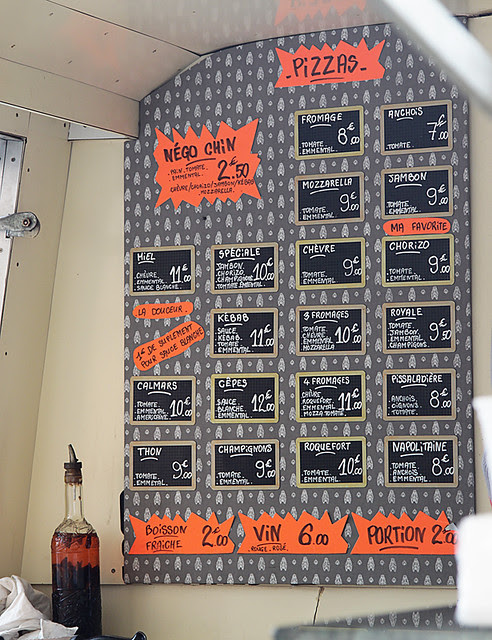 - PIZZAS -
NÉGO CHIN
. PAIN . TOMATE .
EMMENTAL .
2€50
CHÈVRE/CHORIZO/JAMBON/KEBAB
MOZZARELLA.
FROMAGE
8€00
TOMATE
EMMENTAL
ANCHOIS
7€00
TOMATE
MOZZARELLA
9€00
TOMATE
EMMENTAL
JAMBON
9€00
TOMATE.
EMMENTAL
MA FAVORITE
MIEL
11€00
CHÈVRE.
EMMENTAL
SAUCE BLANCHE.
SPÉCIALE
JAMBON
CHORIZO
CHAMPIGNONS
TOMATE EMMENTAL
10€00
CHÈVRE
9€00
TOMATE
EMMENTAL
CHORIZO
9€00
TOMATE.
EMMENTAL
LA DOUCEUR .
1€ DE SUPLEMENT
POUR SAUCE BLANCHE
KEBAB
SAUCE
KEBAB.
TOMATE.
EMMENTAL
11€00
3 FROMAGES
TOMATE
CHÈVRE
EMMENTAL
MOZZARELLA
10€00
ROYALE
TOMATE.
JAMBON.
EMMENTAL
CHAMPIGNONS.
9€50
CALMARS
TOMATE.
EMMENTAL
10€00
CÈPES
SAUCE
BLANCHE.
EMMENTAL
12€00
4 FROMAGES
CHÈVRE
ROQUEFORT.
EMMENTAL
MOZZA.TOMATE.
11€00
PISSALADIÈRE
ANCHOIS.
OIGNONS
TOMATE.
8€00
THON
9€00
TOMATE.
EMMENTAL
CHAMPIGNONS
9€00
TOMATE.
EMMENTAL
ROQUEFORT
10€00
TOMATE.
EMMENTAL
NAPOLITAINE
TOMATE
ANCHOIS
EMMENTAL
8€00
BOISSON
FRAÎCHE
2€00
VIN 6.00
. ROUGE . ROSÉ.
PORTION 2€50